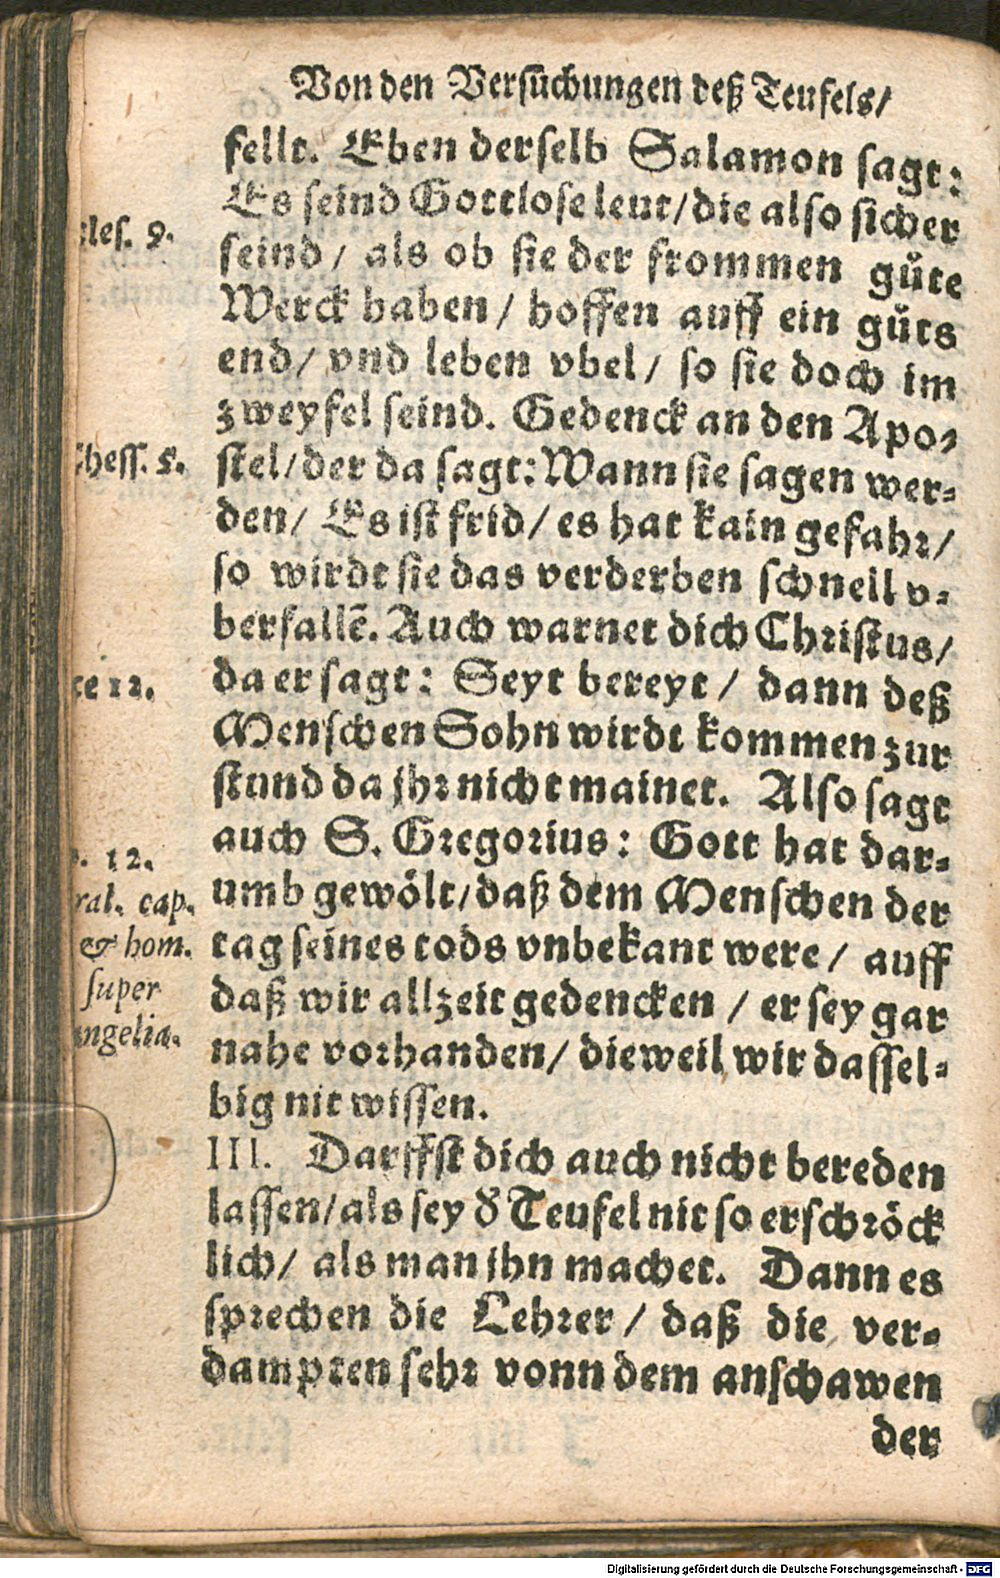 Von den Versuͤchungen deß Teufels/
fellt. Eben derselb Salamon sagt:
Es seind Gottlose leut/die also sicher
les. 9.
seind/ als ob sie der frommen guͤte
Werck haben/ hoffen auff ein guͤts
end/ vnd leben vbel/ so sie doch im
zweyfel seind. Gedenck an den Apo-
Thess. 5.
stel/der da sagt: Wann sie sagen wer-
den/ Es ist frid/ es hat kain gefahr/
so wirdt sie das verderben schnell v-
berfallē. Auch warnet dich Christus/
ce 12.
da er sagt: Seyt bereyt/ dann deß
Menschen Sohn wirdt kommen zur
stund da jhr nicht mainet. Also sagt
auch S. Gregorius: Gott hat dar-
. 12.
ral. cap.
& hom.
super
angelia.
umb gewoͤlt/daß dem Menschen der
tag seines tods vnbekant were/ auff
daß wir allzeit gedencken/ er sey gar
nahe vorhanden/ dieweil wir dassel-
big nit wissen.
III. Darffst dich auch nicht bereden
lassen/als sey d̕ Teufel nit so erschroͤck
lich/ als man jhn machet. Dann es
sprechen die Lehrer/ daß die ver-
dampten sehr vonn dem anschawen
der
Digitalisierung gefördert durch die Deutsche Forschungsgemeinschaft - DFG